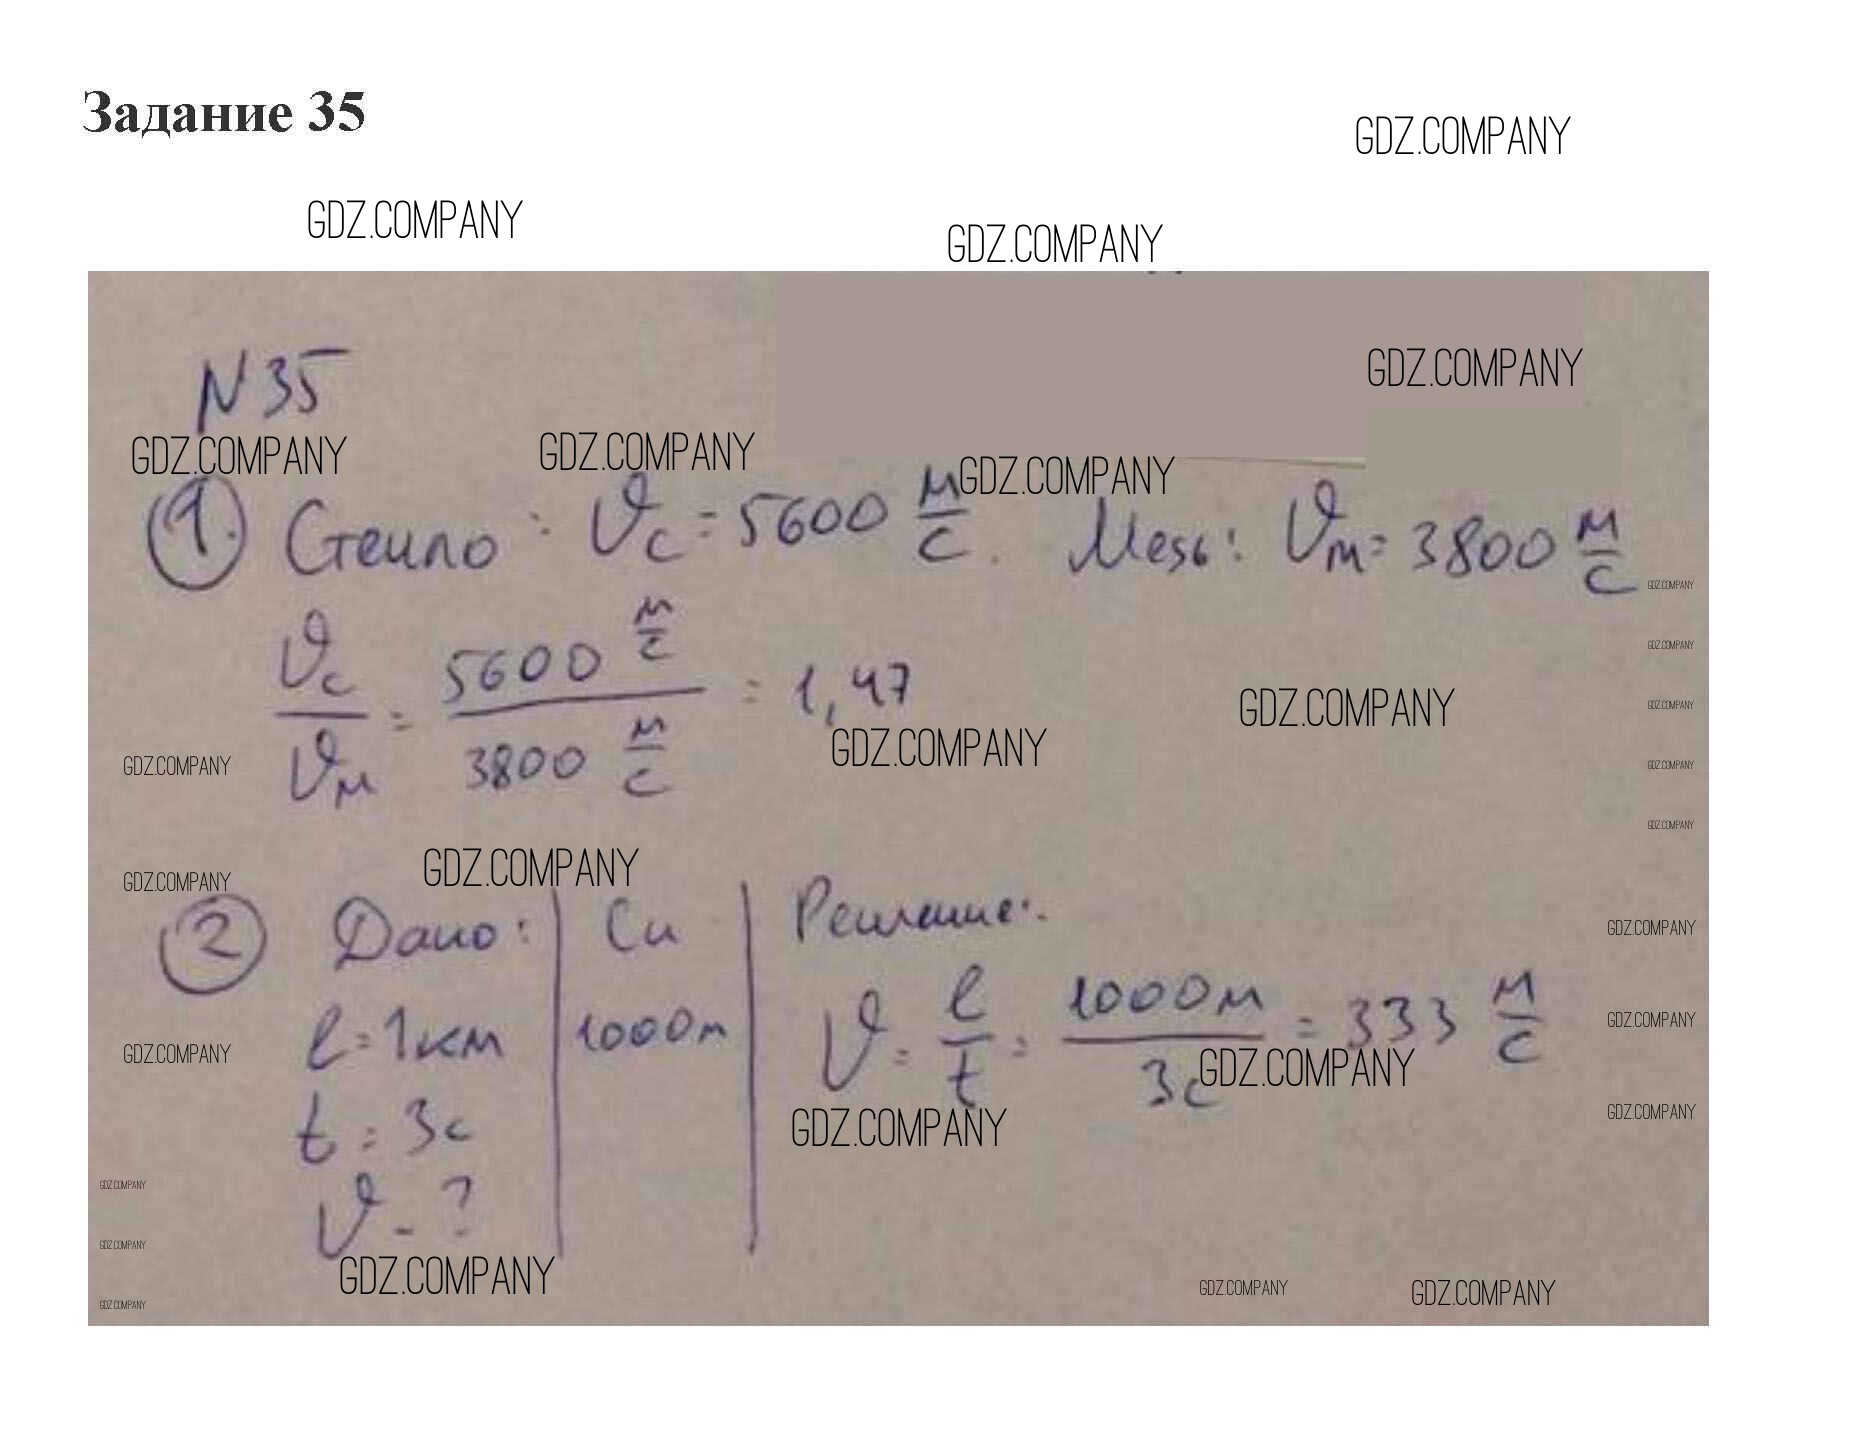 Задание 35
GDZ.COMPANY
GDZ.COMPANY
GDZ.COMPANY
GDZ.COMPANY
N 35
GDZ.COMPANY GDZ.COMPANY GDZ.COMPANY
1. Стекло: υс = 5600 м/с. Медь: υм = 3800 м/с
GDZ.COMPANY
υс/υм = 5600 м/с / 3800 м/с = 1,47
GDZ.COMPANY
GDZ.COMPANY
GDZ.COMPANY
GDZ.COMPANY
GDZ.COMPANY
GDZ.COMPANY
GDZ.COMPANY
GDZ.COMPANY
GDZ.COMPANY
GDZ.COMPANY
2 Дано: Си Решение:
GDZ.COMPANY
l = 1км 1000м υ = l/t = 1000м/3с = 333 м/с
GDZ.COMPANY
GDZ.COMPANY
GDZ.COMPANY
GDZ.COMPANY
GDZ.COMPANY
t = 3с
υ - ?
GDZ.COMPANY
GDZ.COMPANY
GDZ.COMPANY
GDZ.COMPANY
GDZ.COMPANY
GDZ.COMPANY